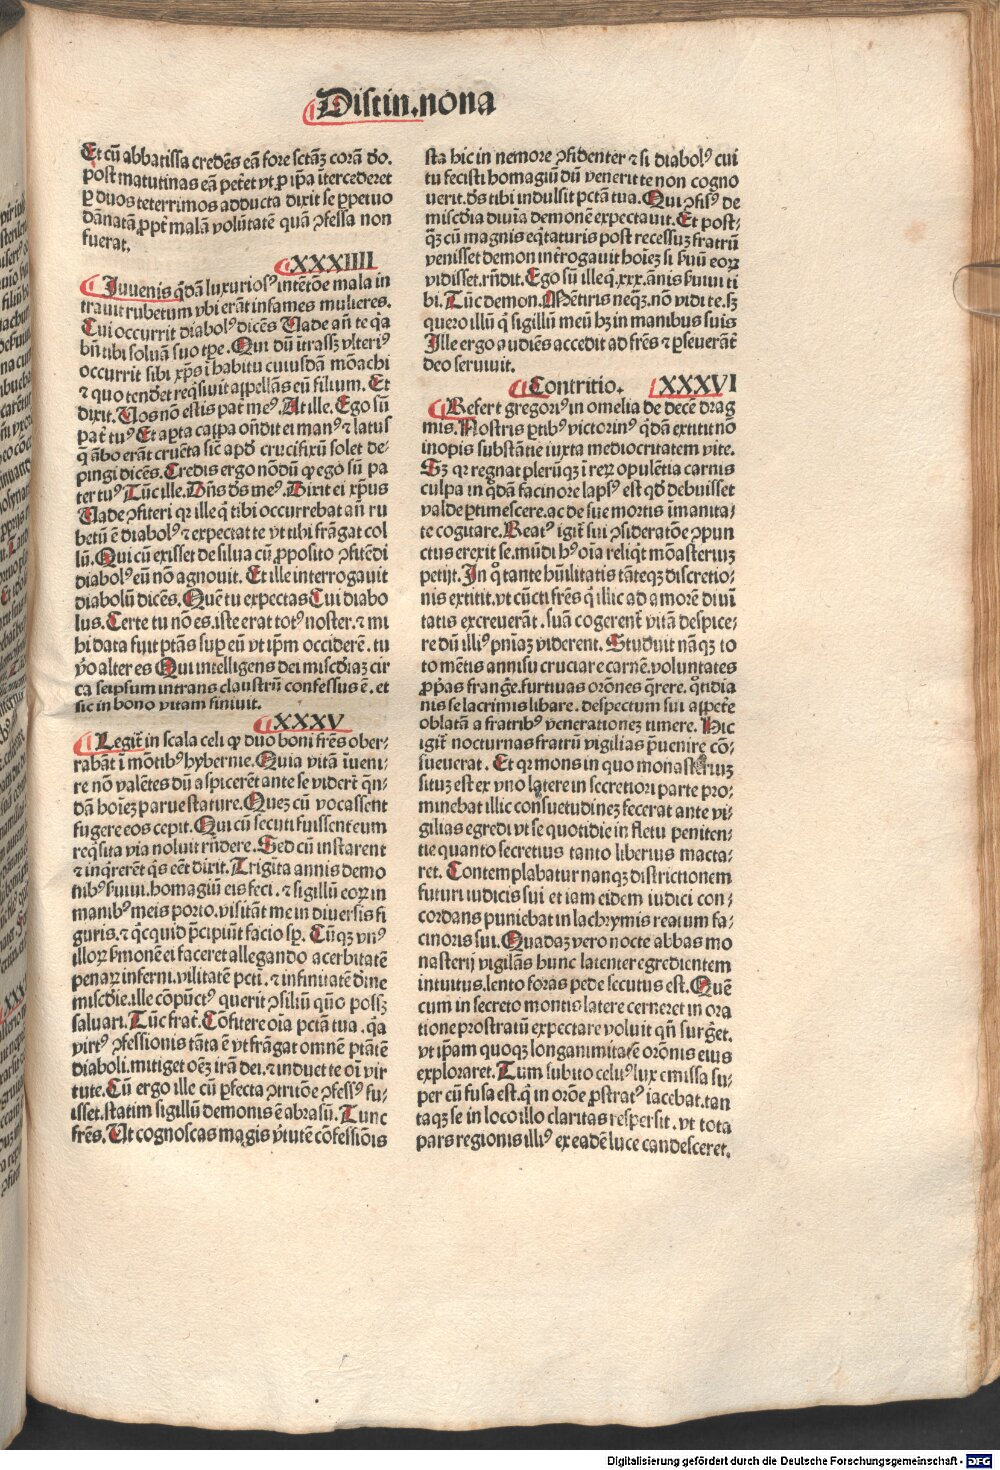 Distin.nona
Et cū abbatissa credēs eā fore sctāʒ corā dō.
post matutinas eā peteret vt ꝑ ip̄a ītercederet
ꝑ duos teterrimos adducta dixit se ꝑpetuo
dānatā ꝓpt̄ malā volūtatē quā ꝯfessa non
fuerat.
XXXIIII
Juuenis qͥdā luxurioſꝰ intētōe mala in
trauit rubetum vbi erāt infames mulieres.
Cui occurrit diabolꝰ dicēs Uade añ te qꝛ
bñ tibi soluā suo tꝑe. Qui dū ītrassʒ vlteriꝰ
occurrit sibi xp̄s ī habitu cuiusdā mōachi
⁊ quo tenderet reqͥsiuit appellās eū filium. Et
dixit. Uos nō estis pat̄ meꝰ. At ille. Ego sū
pat̄ tuꝰ Et aꝑta cappa oñdit ei manꝰ ⁊ latus
q̄ ābo erāt cruēta sic̄ apd̄ crucifixū solet de-
pingi dicēs. Credis ergo nōdū ꝙ ego sū pa
ter tuꝰ Tūc ille. Dn̄s ds̄ meꝰ. Dixit ei xp̄us
Uade ꝯfiteri qꝛ ille qͥ tibi occurrebat añ ru
betū ē diabolꝰ ⁊ expectat te vt tibi frāgat col
lū. Qui cū exisset de silua cū ꝓposito ꝯfitēdi
diabolꝰ eū nō agnouit. Et ille interrogauit
diabolū dicēs. Quē tu expectas Cui diabo
lus. Certe tu nō es. iste erat totꝰ noster. ⁊ mi
hi data fuit ptās suꝑ eū vt ip̄m occiderē. tu
v̄o alter es Qui intelligens dei miscd̄iaʒ cir
ca seipsum intrans claustrū confessus ē. et
sic in bono vitam finiuit.
XXXV
Legit̄ in scala celi ꝙ duo boni frēs ober-
rabāt ī mōtibꝰ hybernie. Quia vitā īueni-
re nō valētes dū aspicerēt ante se viderūt qn̄-
dā hoīeʒ parue stature. Queʒ cū vocassent
fugere eos cepit. Qui cū secuti fuissent eum
reqͥsita via noluit rn̄dere. Sed cū instarent
⁊ inqͥrerēt qͥs eēt dixit. Triginta annis demo
nibꝰ ẜuiui. homagiū eis feci. ⁊ sigillū eoꝝ in
manibꝰ meis porto. visitāt me in diuersis fi
guris. ⁊ qͥcqͥd p̄cipiūt facio sꝑ. Cūqʒ vnꝰ
illoꝝ ẜmonē ei faceret allegando acerbitatē
penaꝝ inferni. vilitatē pctī. ⁊ infinitatē dīne
miscd̄ie. ille cōpūctꝰ querit ꝯsiliū qūo possʒ
saluari. Tūc frat̄. Cōfitere oīa pctā tua. qꝛ
virtꝰ ꝯfessionis tāta ē vt frāgat omnē ptātē
diaboli. mitiget oēʒ irā dei. ⁊ induet te oī vir
tute. Cū ergo ille cū ꝑfecta ꝯtritōe ꝯfessꝰ fu-
isset. statim sigillū demonis ē abrasū. Tunc
frēs. Ut cognoscas magis v̄tutē cōfessiōis
sta hic in nemore ꝯfidenter ⁊ si diabolꝰ cui
tu fecisti homagiū dū venerit te non cogno
uerit. ds̄ tibi indulsit pctā tua. Qui ꝯfisꝰ de
miscd̄ia diuīa demonē expectauit. Et post-
qʒ cū magnis eqͥtaturis post recessuʒ fratrū
venisset demon īterrogauit hoīeʒ si ẜuū eoꝝ
vidisset. rn̄dit. Ego sū ille qͥ. xxx. ānis ẜuiui ti
bi. Tūc demon. Mētiris neqʒ. nō vidi te. sʒ
quero illū qͥ sigillū meū hʒ in manibus suis
Ille ergo audiēs accedit ad frēs ⁊ ꝑseuerāt̄
deo seruiuit.
Contritio. XXXVI
Refert gregoriꝰ in omelia de decē drag
mis. Nostris ꝑtibꝰ victorinꝰ qͥdā extitit nō
inopis substātie iuxta mediocritatem vite.
Sʒ qꝛ regnat pleruqʒ ī reꝝ opulētia carnis
culpa in qͥdā facinore lapsꝰ est qd̄ debuisset
valde ꝑtimescere. ac de sue mortis īmanita-
te cogitare. Reatꝰ igit̄ sui ꝯsideratōe ꝯpun
ctus erexit se. mūdi hꝰ oīa reliqͥt mōasteriuʒ
petijt. In qͦ tante hūilitatis tāteqʒ discretio-
nis extitit. vt cūcti frēs qͥ illic ad amorē diuī
tatis excreuerāt. suā cogerent̄ vitā despice-
re dū illiꝰ pn̄iaʒ viderent. Studuit nāqʒ to
to mētis annisu cruciare carnē. voluntates
ꝓp̄as frangere. furtiuas orōnes q̄rere. qͦtidia
nis se lacrimis libare. despectum sui appete
oblatā a fratribꝰ venerationeʒ timere. Hic
igit̄ nocturnas fratrū vigilias p̄uenire cō-
sueuerat. Et qꝛ mons in quo monasteriuʒ
situʒ est ex vno latere in secretiori parte pro-
minebat illic consuetudineʒ fecerat ante vi-
gilias egredi vt se quotidie in fletu peniten-
tie quanto secretius tanto liberius macta-
ret. Contemplabatur nanqʒ districtionem
futuri iudicis sui et iam eidem iudici con-
cordans puniebat in lachrymis reatum fa-
cinoris sui. Quadaʒ vero nocte abbas mo
nasterij vigilās hunc latenter egredientem
intuitus. lento foras pede secutus est. Quē
cum in secreto montis latere cerneret in ora
tione prostratū expectare voluit qn̄ surgeret.
vt ip̄am quoqʒ longanimitatē orōnis eius
exploraret. Tum subito celitꝰ lux emissa su-
per eū fusa est. qͥ in orōe ꝓstratꝰ iacebat. tan
taqʒ se in loco illo claritas respersit. vt tota
pars regionis illiꝰ ex eadē luce candesceret.
Digitalisierung gefördert durch die Deutsche Forschungsgemeinschaft - DFG